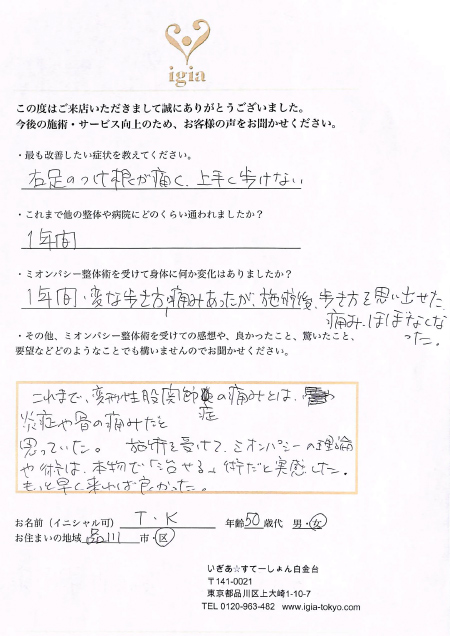 igia
この度はご来店いただきまして誠にありがとうございました。
今後の施術・サービス向上のため、お客様の声をお聞かせください。
・最も改善したい症状を教えてください。
右足のつけ根が痛く、上手く歩けない
・これまで他の整体や病院にどのくらい通われましたか？
1年間
・ミオンパシー整体術を受けて身体に何か変化はありましたか？
1年間・変な歩き方、痛みあったが、施術後、歩き方を思い出せた。
痛み、ほぼなくなった。
・その他、ミオンパシー整体術を受けての感想や、良かったこと、驚いたこと、
要望などどのようなことでも構いませんのでお聞かせください。
これまで、変形性股関節症の痛みとは、
炎症や骨の痛みだと
思っていた。 施術を受けて、ミオンパシーの理論
や術は、本物で「治せる」術だと実感した。
もっと早く来れば良かった。
お名前（イニシャル可） T・K 年齢 50歳代 男・女
お住まいの地域 品川 市・区
いぎあ☆すてーしょん白金台
〒141-0021
東京都品川区上大崎1-10-7
TEL 0120-963-482 www.igia-tokyo.com